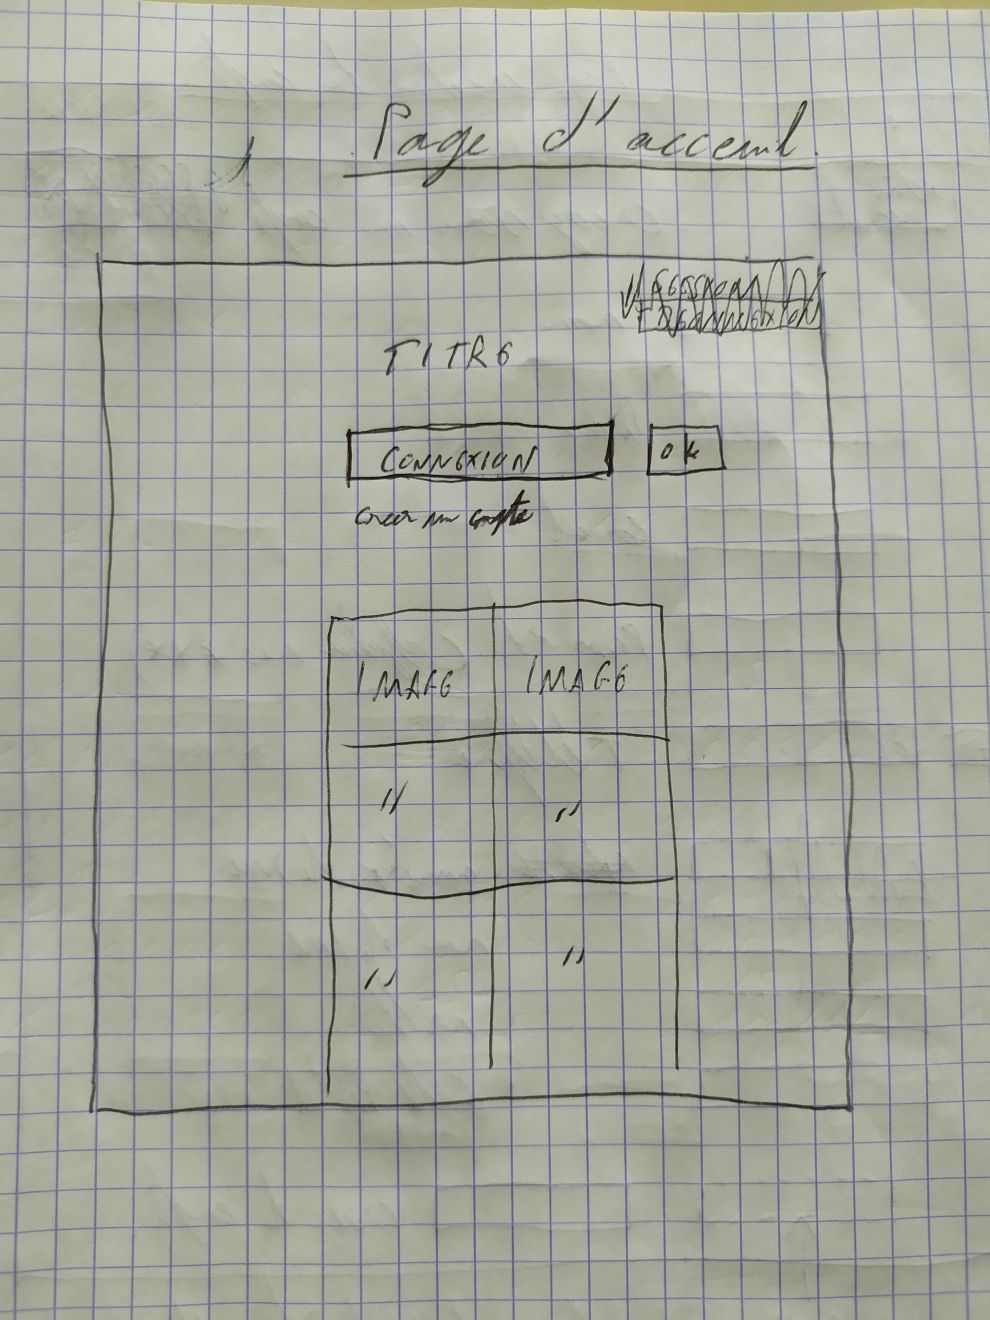 Page d'acceuil
TITRE
CONNEXION
OK
creer un compte
IMAGE IMAGE
" "
" "